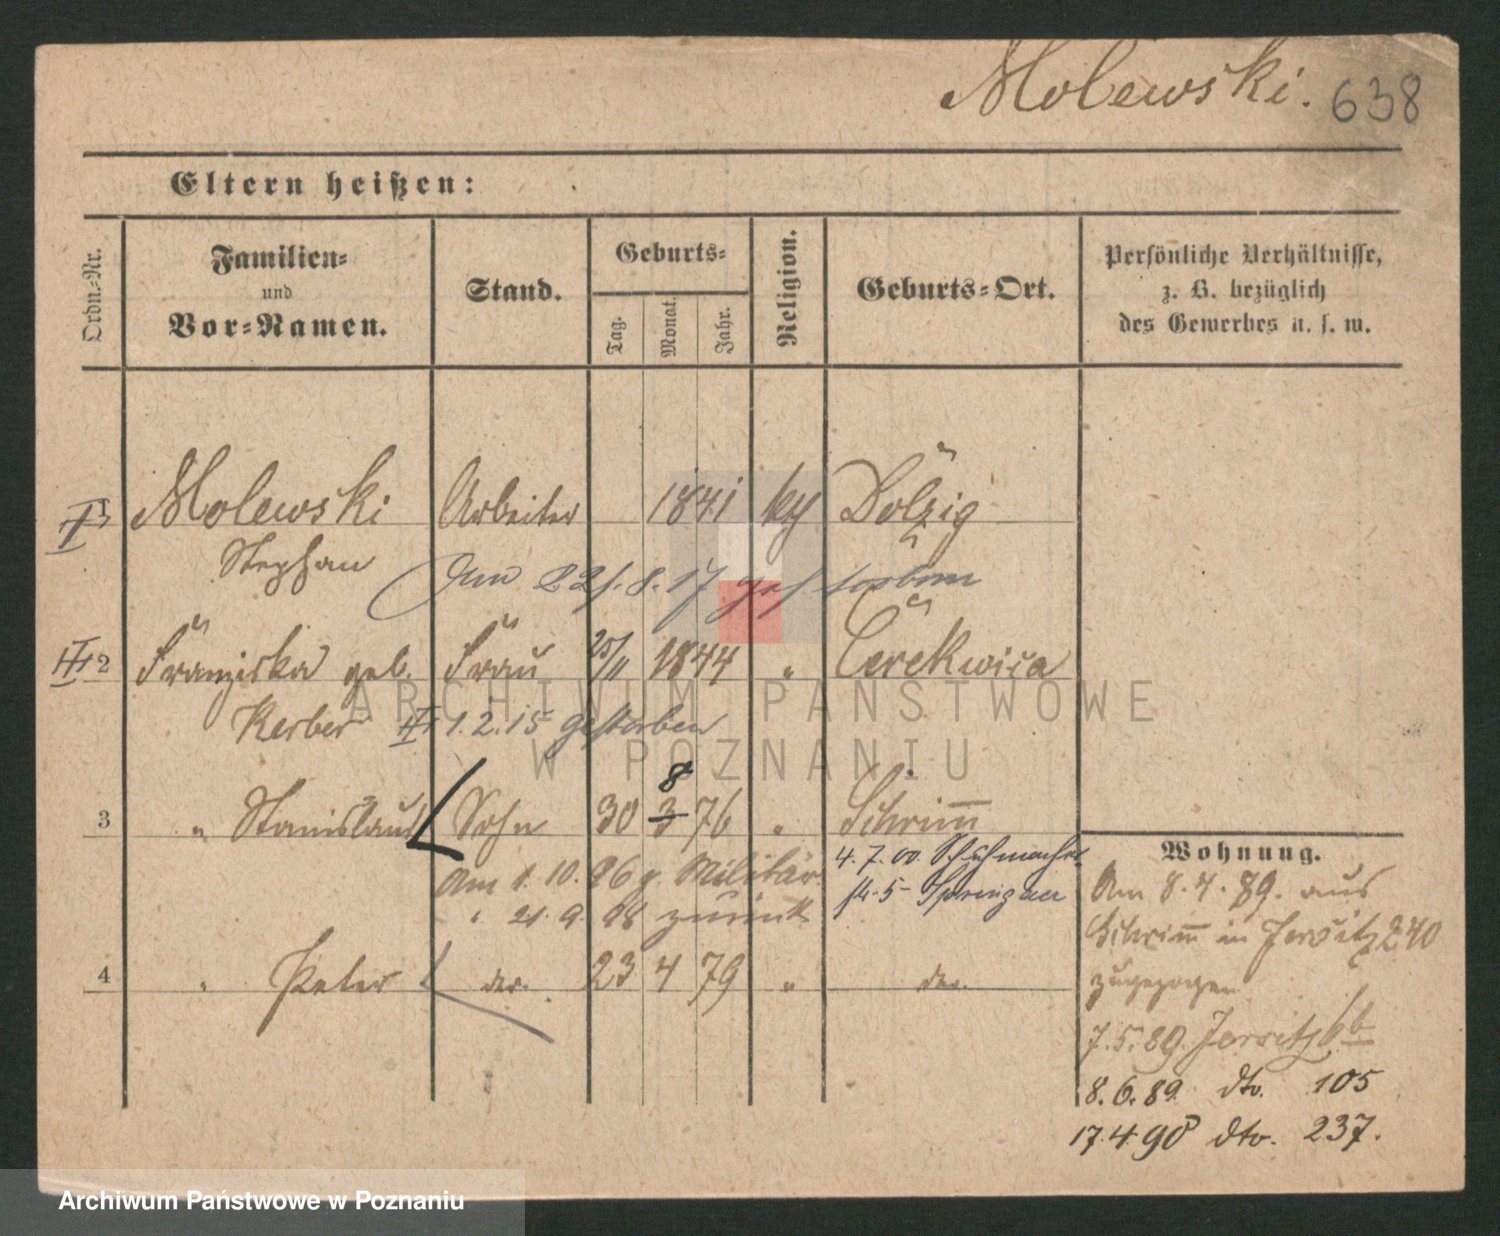 Molewski. 638
Eltern heißen:
Ordn.-Nr.
Familien-
und
Vor-Namen.
Stand.
Geburts-
Tag.
Monat.
Jahr.
Religion.
Geburts-Ort.
Persönliche Verhältnisse,
z. B. bezüglich
des Gewerbes u. s. w.
1 Molewski Arbeiter 1841 kg Dolzig
Stephan
22/.8.17 gestorben
2 Franziska geb. Frau 25/11 1844 " Cerekwica
Kerber 1.2.15 gestorben
8
3 " Stanislaus Sohn 30 3 76 " Schrimm
Am 1.10.96 z. Militär
" 21.9.98 zurück
4.7.00 Schuhmacherstr. 5
4 " Peter do. 23 4 79 " do.
Wohnung.
Am 8.4.89. aus
Schrimm in Jersitz 240
zugezogen
7.5.89. Jersitz 6b
8.6.89. dto. 105
17.4.90 dto. 237.
ARCHIWUM PAŃSTWOWE
W POZNANIU
Archiwum Państwowe w Poznaniu